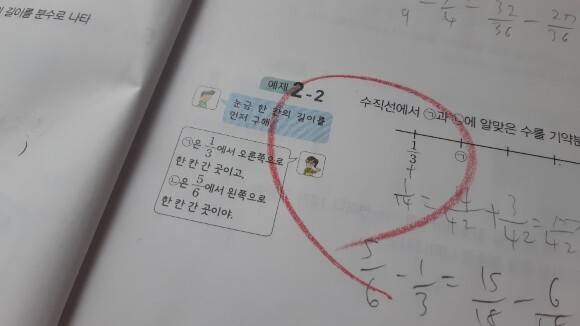 길이를 분수로 나타
예제 2-2
눈금 한 칸의 길이를
먼저 구해.
㉠은 1/3에서 오른쪽으로
한 칸 간 곳이고,
㉡은 5/6에서 왼쪽으로
한 칸 간 곳이야.
수직선에서 ㉠과 ㉡에 알맞은 수를 기약분
1/3
㉠
+
1/14 = 14/42 + 3/42 =
5/6 - 1/3 = 15/18 - 6
32/36